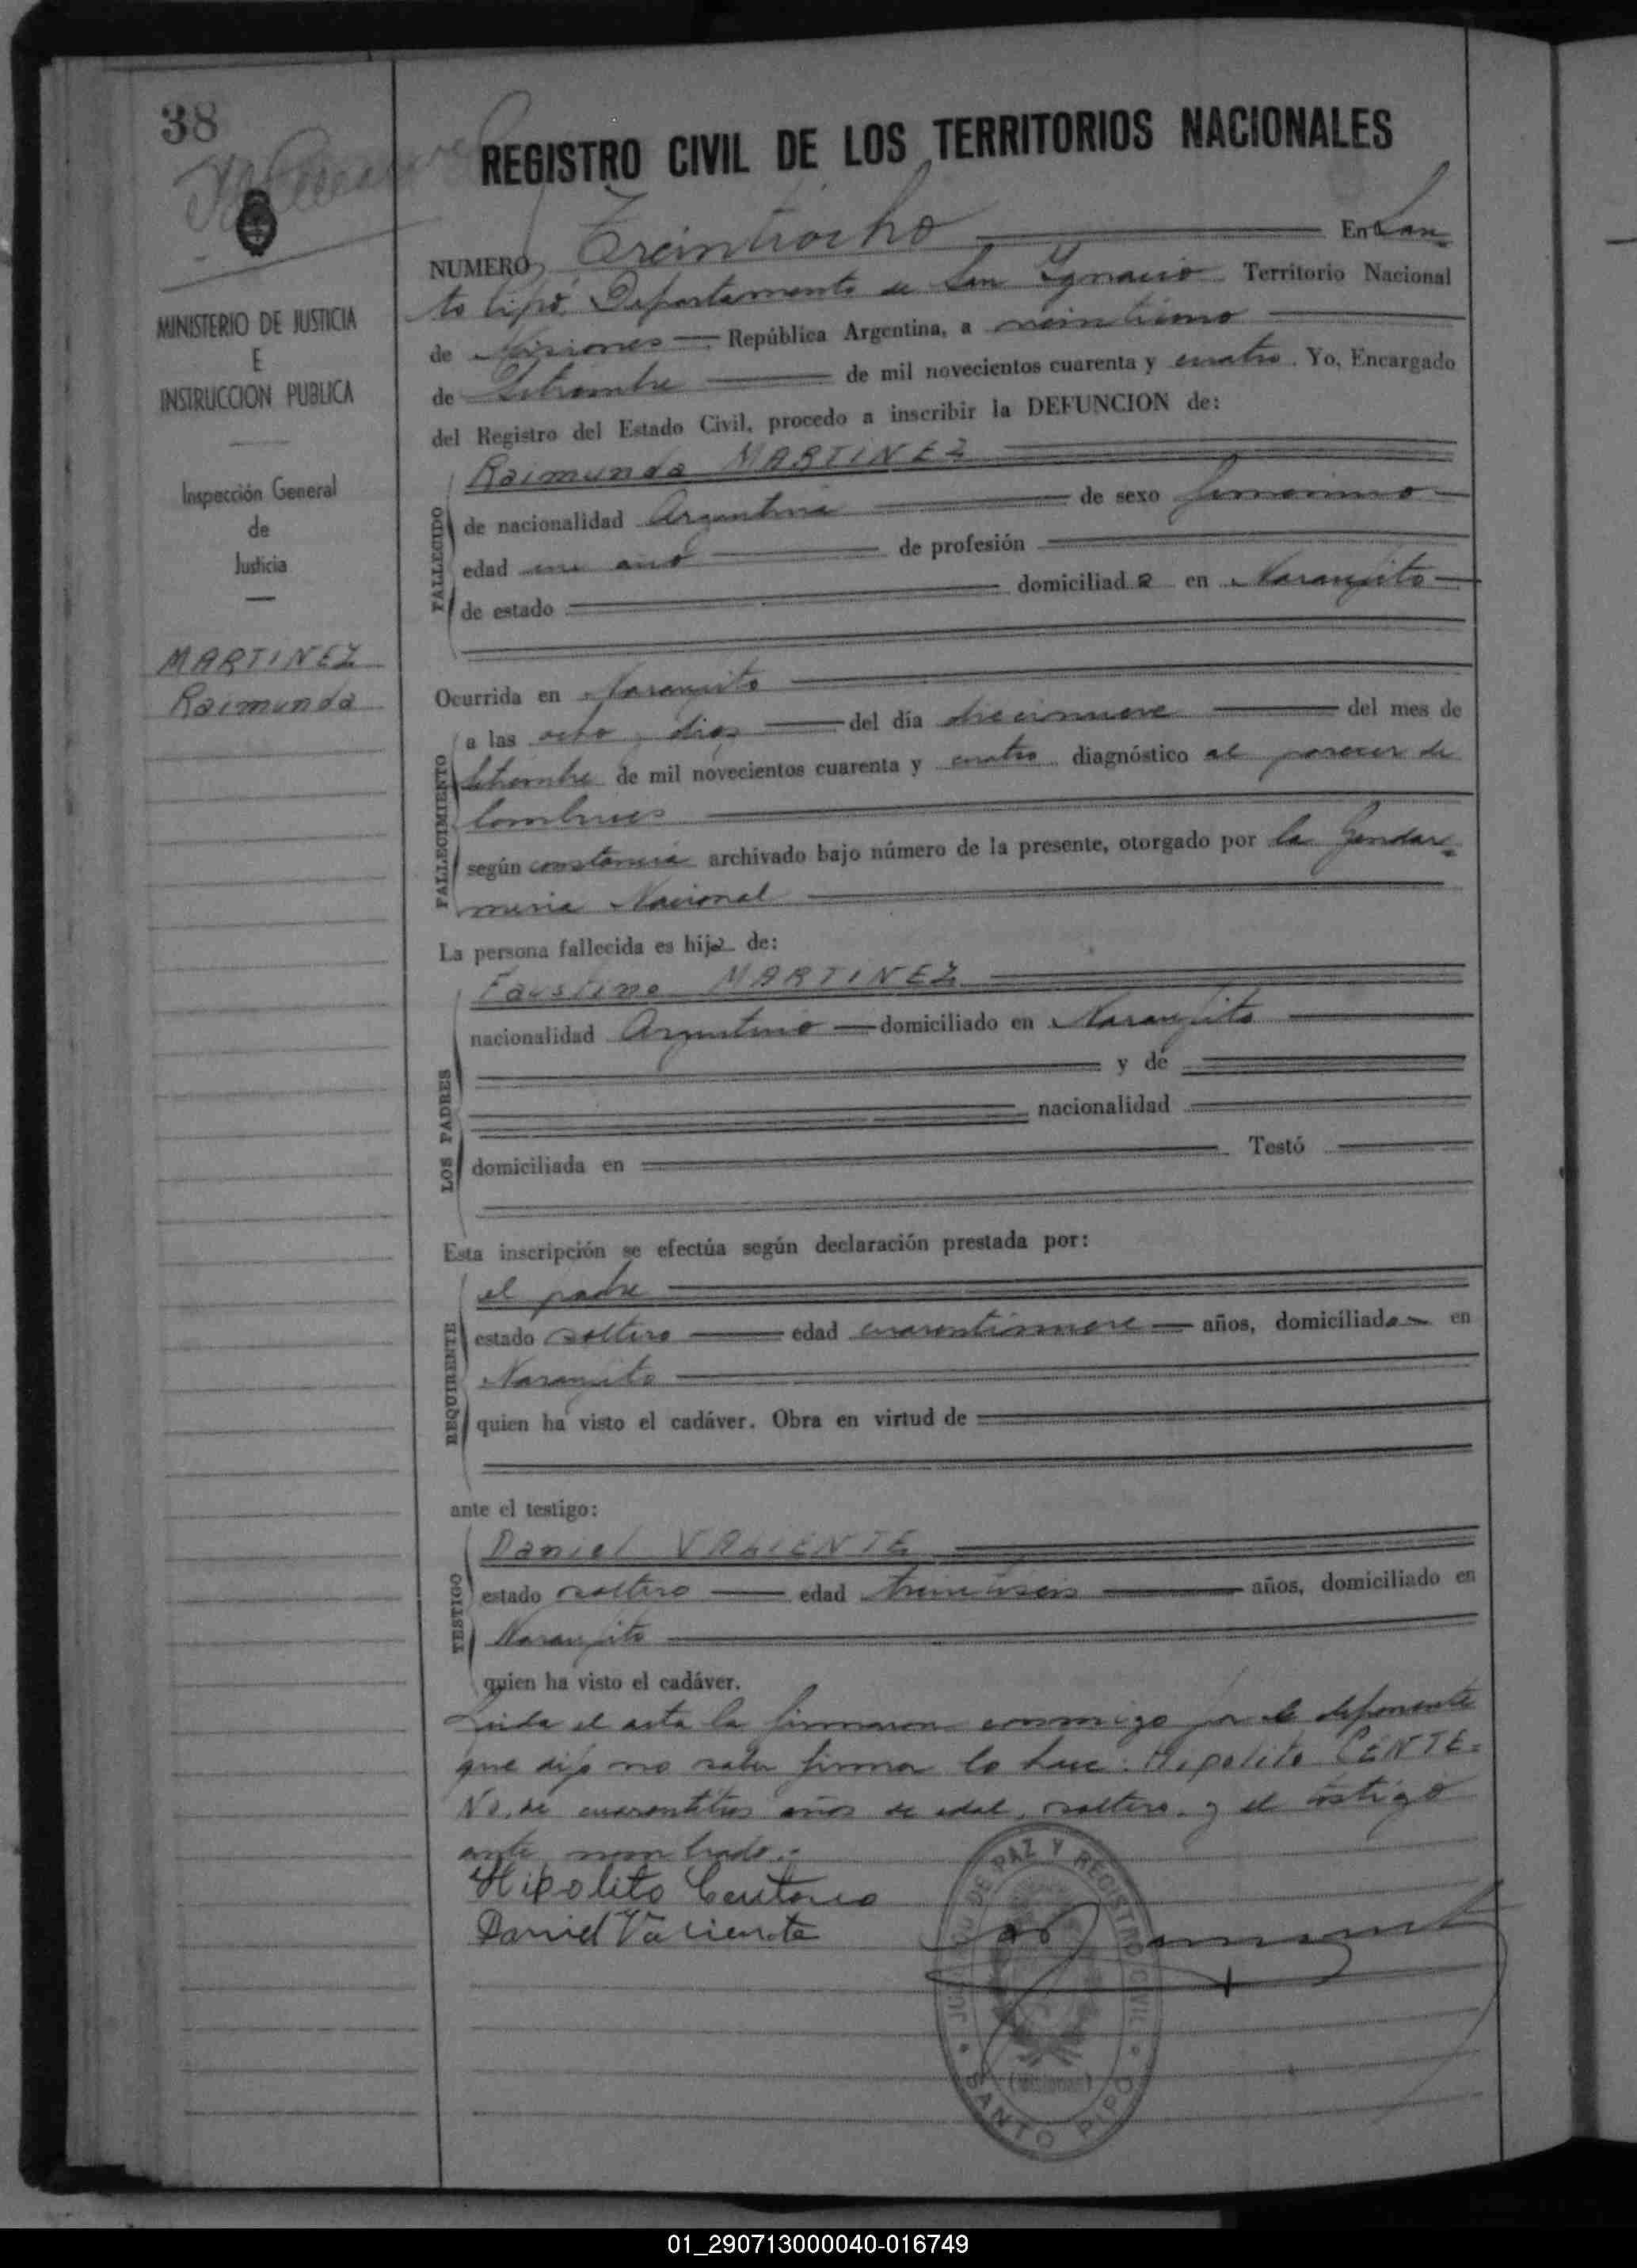 38
REGISTRO CIVIL DE LOS TERRITORIOS NACIONALES
NUMERO Treintiocho En San-
to Pipó Departamento de San Ignacio Territorio Nacional
de Misiones República Argentina, a veintiuno
de Setiembre de mil novecientos cuarenta y cuatro. Yo, Encargado
del Registro del Estado Civil, procedo a inscribir la DEFUNCION de:
MINISTERIO DE JUSTICIA
E
INSTRUCCION PUBLICA
Inspección General
de
Justicia
MARTINEZ
Raimunda
FALLECIDO
Raimunda MARTINEZ
de nacionalidad Argentina de sexo femenino
edad un año de profesión
de estado domiciliada en Naranjito
Ocurrida en Naranjito
FALLECIMIENTO
a las ocho y diez del día diecinueve del mes de
Setiembre de mil novecientos cuarenta y cuatro diagnóstico al parecer de
lombrices
según constancia archivado bajo número de la presente, otorgado por la Gendar-
meria Nacional
La persona fallecida es hija de:
LOS PADRES
Faustino MARTINEZ
nacionalidad Argentino domiciliado en Naranjito
y de
nacionalidad
domiciliada en Testó
Esta inscripción se efectúa según declaración prestada por:
REQUIRENTE
el padre
estado soltero edad cuarentinueve años, domiciliado en
Naranjito
quien ha visto el cadáver. Obra en virtud de
ante el testigo:
TESTIGO
Daniel VALIENTE
estado soltero edad treintiseis años, domiciliado en
Naranjito
quien ha visto el cadáver.
Leida el acta la firmaron conmigo por el deponente
que dijo no saber firmar lo hace: Hipolito CENTE-
NO, de cuarentitres años de edad, soltero y el testigo
ante nombrado.-
Hipolito Centeno
Daniel Valiente
JUZGADO DE PAZ Y REGISTRO CIVIL
(Misiones)
SANTO PIPO
01_290713000040-016749